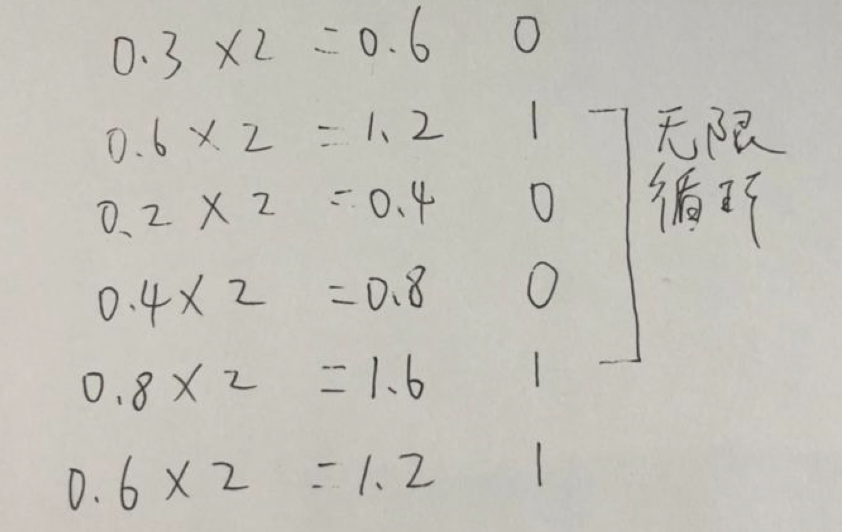 0.3 ×2 =0.6 0
0.6 × 2 =1.2 1 无限
0.2 × 2 =0.4 0 循环
0.4× 2 =0.8 0
0.8 × 2 =1.6 1
0.6 × 2 =1.2 1